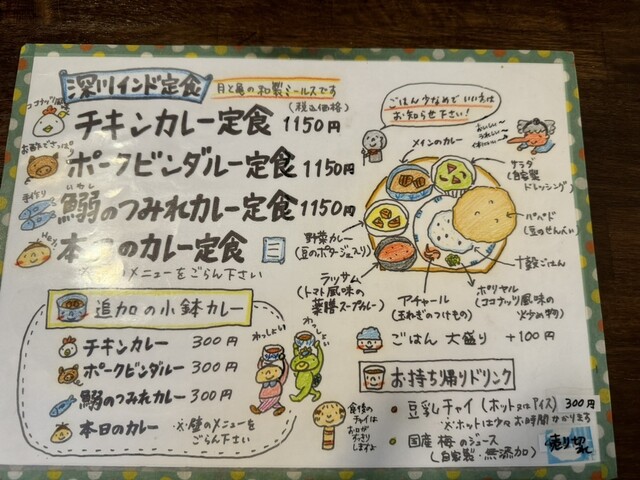 深川インド定食
月と亀の和製ミールスです
(税込価格)
ココナッツ風味
チキンカレー定食 1150円
お酢でさっぱり
ポークビンダルー定食 1150円
手作り
いわし
鰯のつみれカレー定食 1150円
Hey
本日のカレー定食
メニューをごらん下さい
追加の小鉢カレー
チキンカレー 300円
ポークビンダルー 300円
鰯のつみれカレー 300円
本日のカレー ※壁のメニューを
ごらん下さい
わっしょい
わっしょい
ごはん少なめで いい方は
お知らせ下さい!
おいしい〜
うれしい〜
メインのカレー
サラダ
(自家製
ドレッシング)
パパド
(豆のせんべい)
十穀ごはん
ポリヤル
(ココナッツ風味の
炒め物)
アチャール
(玉ねぎのつけもの)
野菜カレー
(豆のポタージュ入り)
ラッサム
(トマト風味の
薬膳スープカレー)
ごはん 大盛り +100円
お持ち帰りドリンク
・豆乳チャイ(ホット又はアイス) 300円
※ホットは少々お時間かかります
・国産 梅のジュース
(自家製・無添加)
売り切れ
食後の
チャイは
お口が
すっきり
しますよ